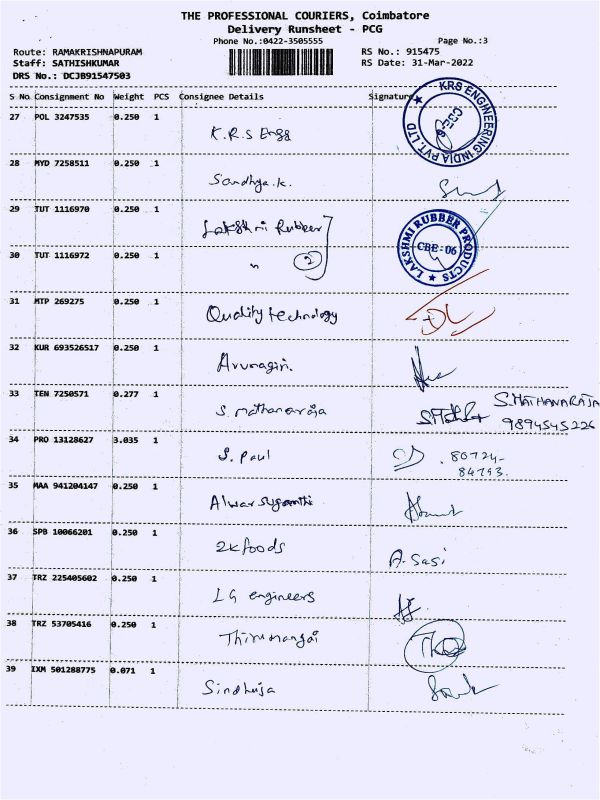 THE PROFESSIONAL COURIERS, Coimbatore
Delivery Runsheet - PCG
Phone No.:0422-3505555 Page No.:3
Route: RAMAKRISHNAPURAM RS No.: 915475
Staff: SATHISHKUMAR RS Date: 31-Mar-2022
DRS No.: DCJB91547503
S No Consignment No Weight PCS Consignee Details Signature
27 POL 3247535 0.250 1 K.R.S Engg KRS ENGINEERING INDIA PVT. LTD CBE-6
28 MYD 7258511 0.250 1 Sandhya.k.
29 TUT 1116970 0.250 1 Lakshmi Rubber LAKSHMI RUBBER PRODUCTS CBE-06
30 TUT 1116972 0.250 1 " 2
31 MTP 269275 0.250 1 Quality technology
32 KUR 693526517 0.250 1 Arunagiri.
33 TEN 7250571 0.277 1 S. Mathanaraja S.MATHANARAJA
9894545226
34 PRO 13128627 3.035 1 S. Paul 80724-
84793.
35 MAA 941204147 0.250 1 Alwar Suganthi
36 SPB 10066201 0.250 1 2k foods A. Sasi
37 TRZ 225405602 0.250 1 LG engineers
38 TRZ 53705416 0.250 1 Thirumangai
39 IXM 501288775 0.071 1 Sindhuja